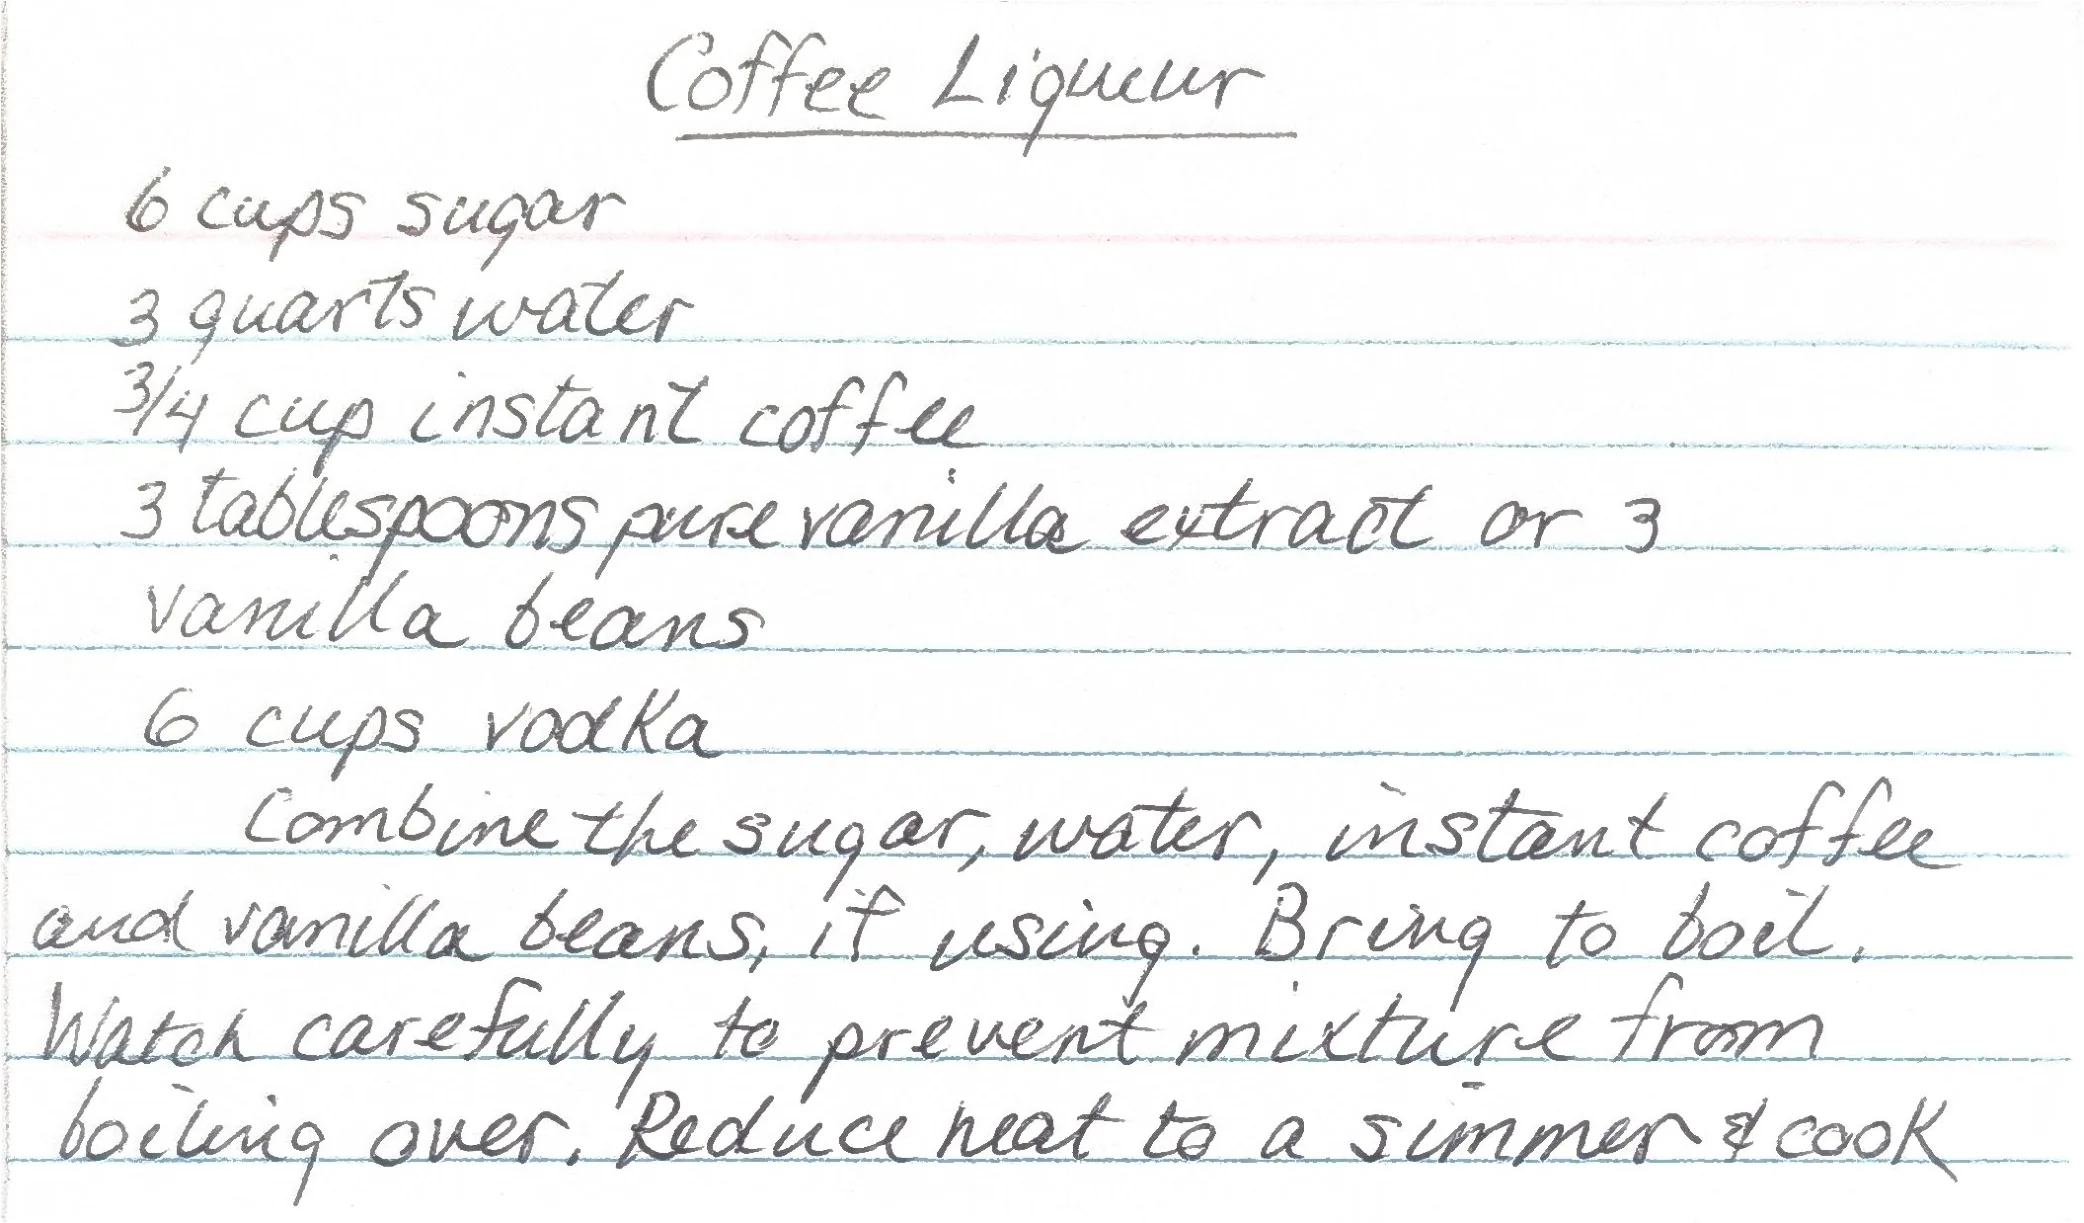 Coffee Liqueur
6 cups sugar
3 quarts water
3/4 cup instant coffee
3 tablespoons pure vanilla extract or 3
vanilla beans
6 cups vodka
Combine the sugar, water, instant coffee
and vanilla beans, if using. Bring to boil.
Watch carefully to prevent mixture from
boiling over. Reduce heat to a simmer & cook